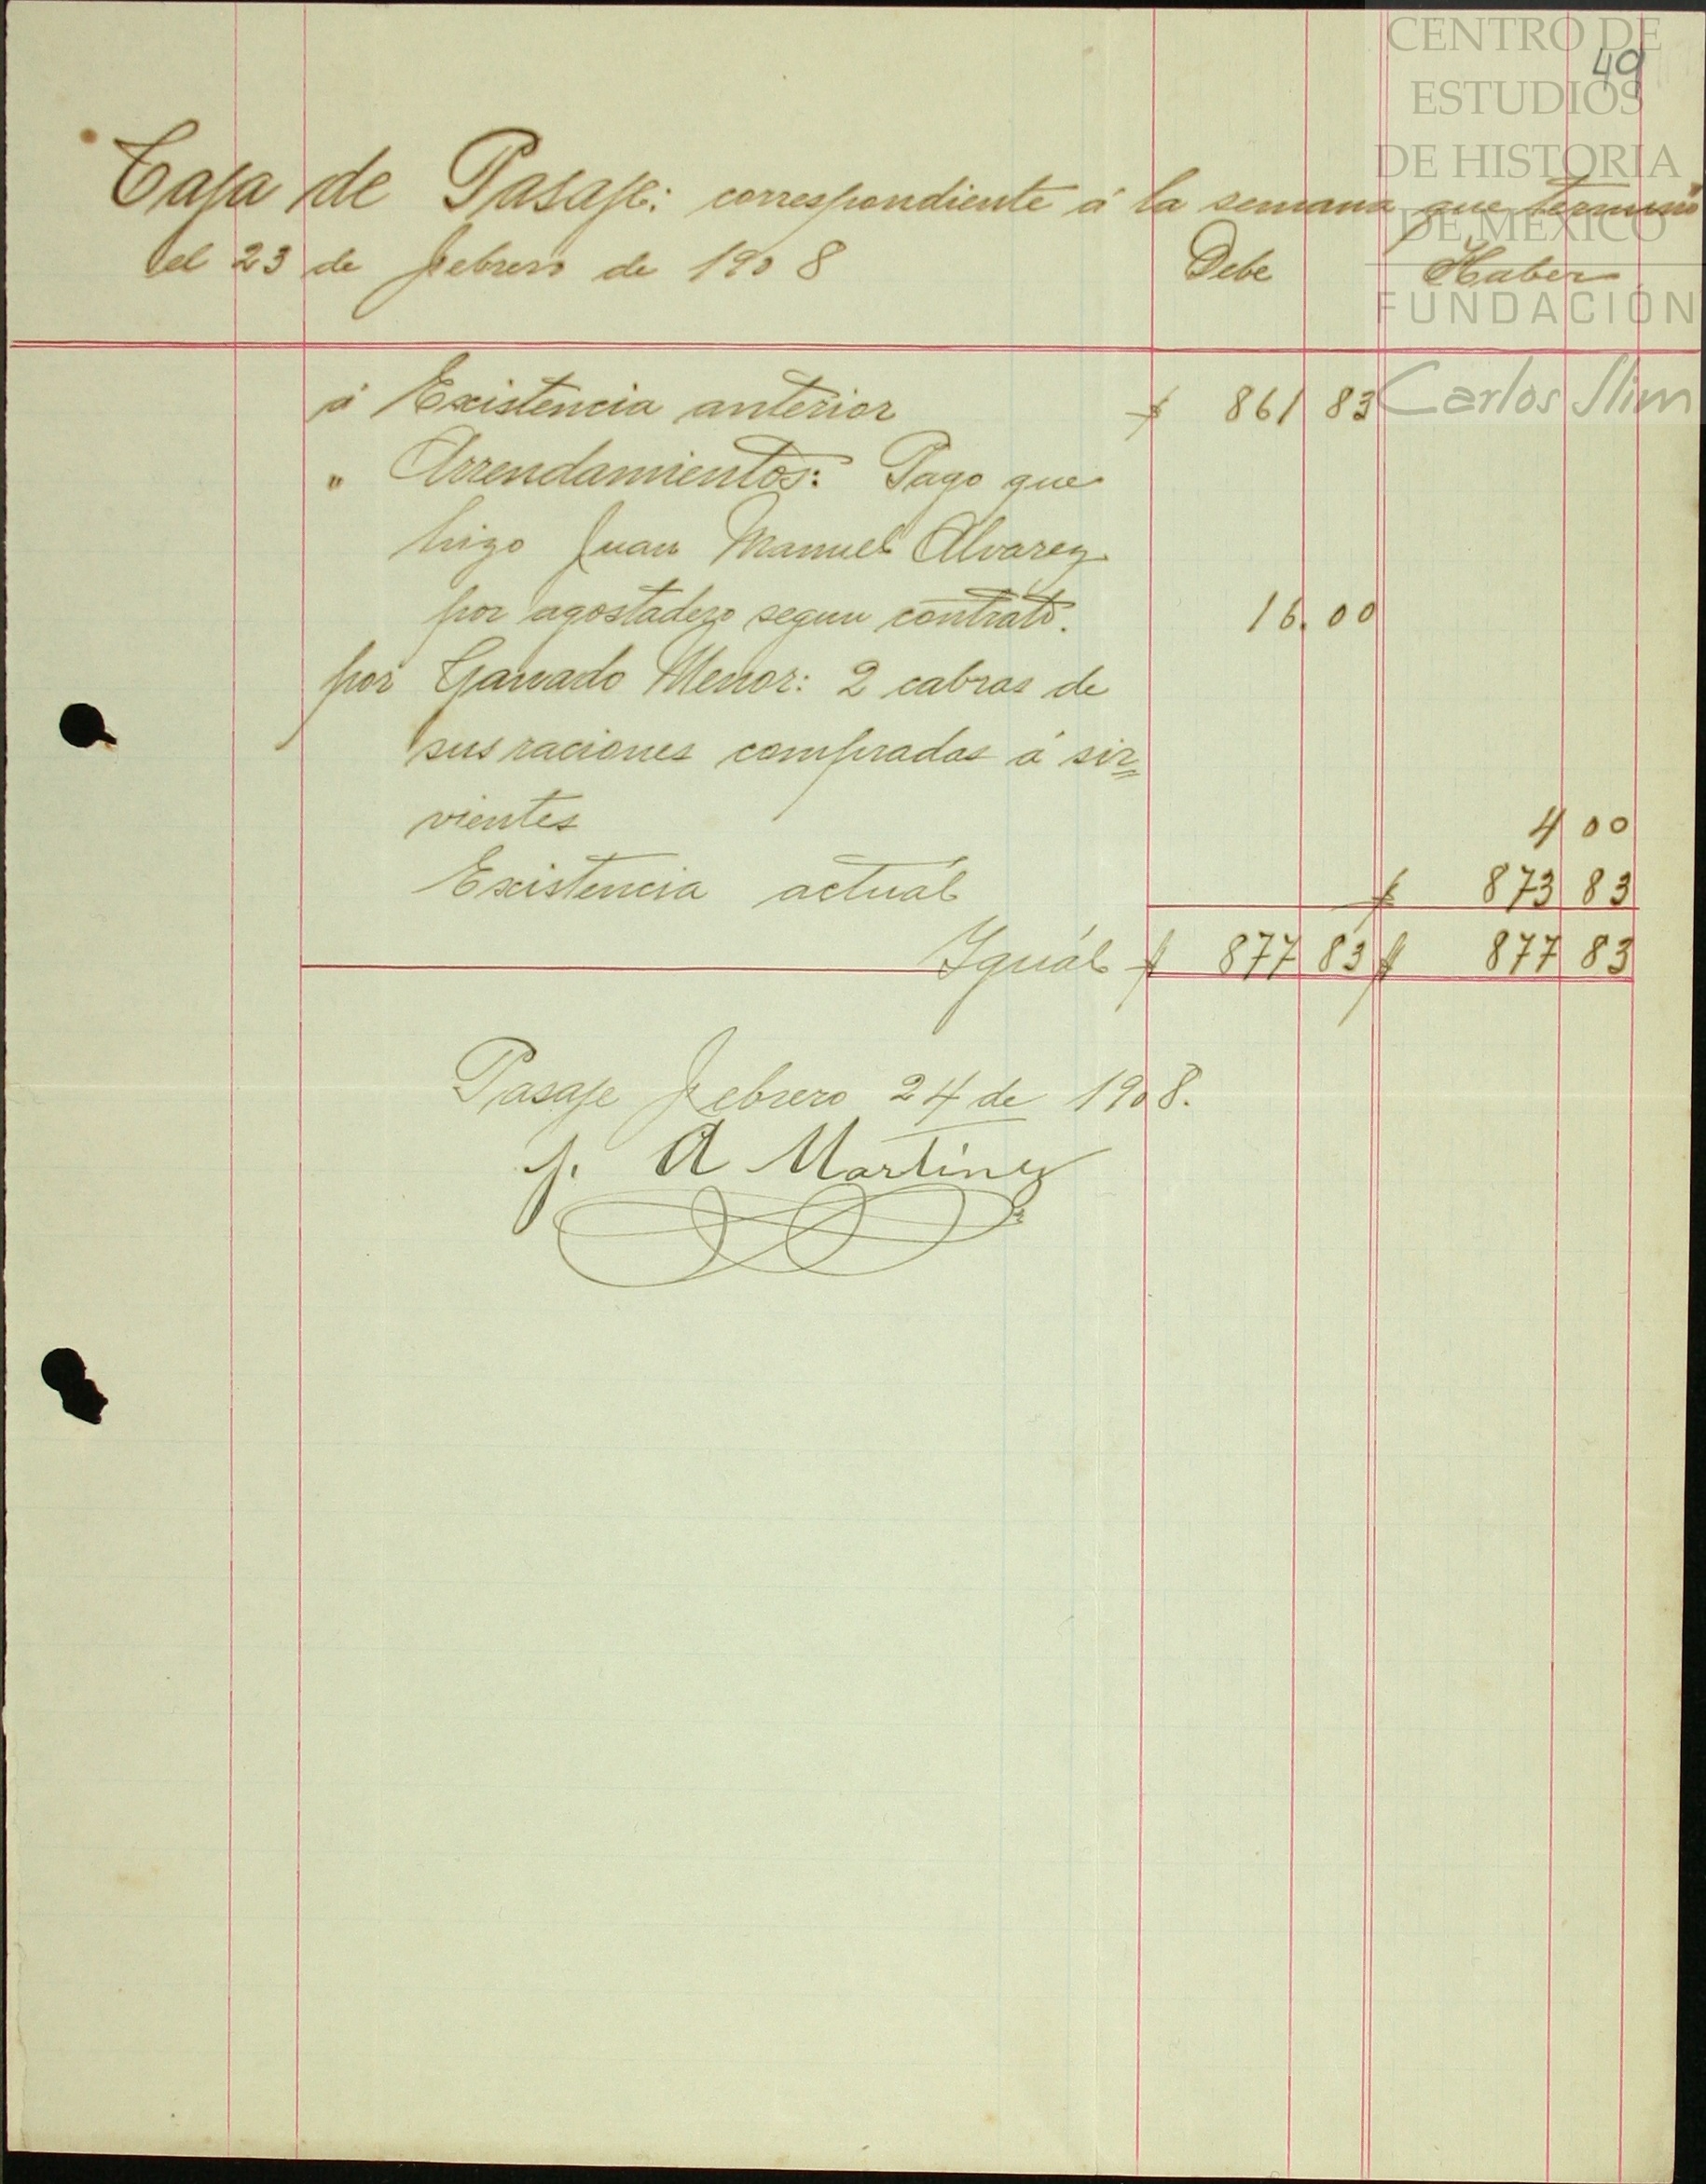 CENTRO DE
49
ESTUDIOS
DE HISTORIA
DE MEXICO
FUNDACIÓN
Carlos Slim
Caja de Pasaje: correspondiente á la semana que terminó
el 23 de Febrero de 1908 Debe Haber
á Existencia anterior $ 861 83
" Arrendamientos: Pago que
hizo Juan Manuel Alvarez
por agostadero segun contrato. 16.00
por Ganado Menor: 2 cabras de
sus raciones compradas á sir=
vientes 4 00
Existencia actual $ 873 83
Igual $ 877 83 $ 877 83
Pasaje Febrero 24 de 1908.
p. A Martinez